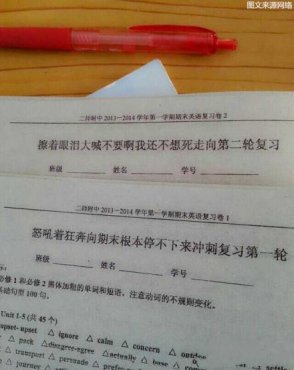 图文来源网络
二附中2013—2014学年第一学期期末英语复习卷2
擦着眼泪大喊不要啊我还不想死走向第二轮复习
班级 姓名 学号
二附中2013—2014学年第一学期期末英语复习卷1
怒吼着狂奔向期末根本停不下来冲刺复习第一轮
班级 姓名 学号
必修1和必修2黑体加粗的单词和短语。注意动词的不规则变化。
基础句型100句。
Unit 1-5 (共45个)
upset- upset △ ignore △ calm △ concern △
△ pack △disagree-agree △actually △ base △
△ transport △ persuade △ prefer
△ journey